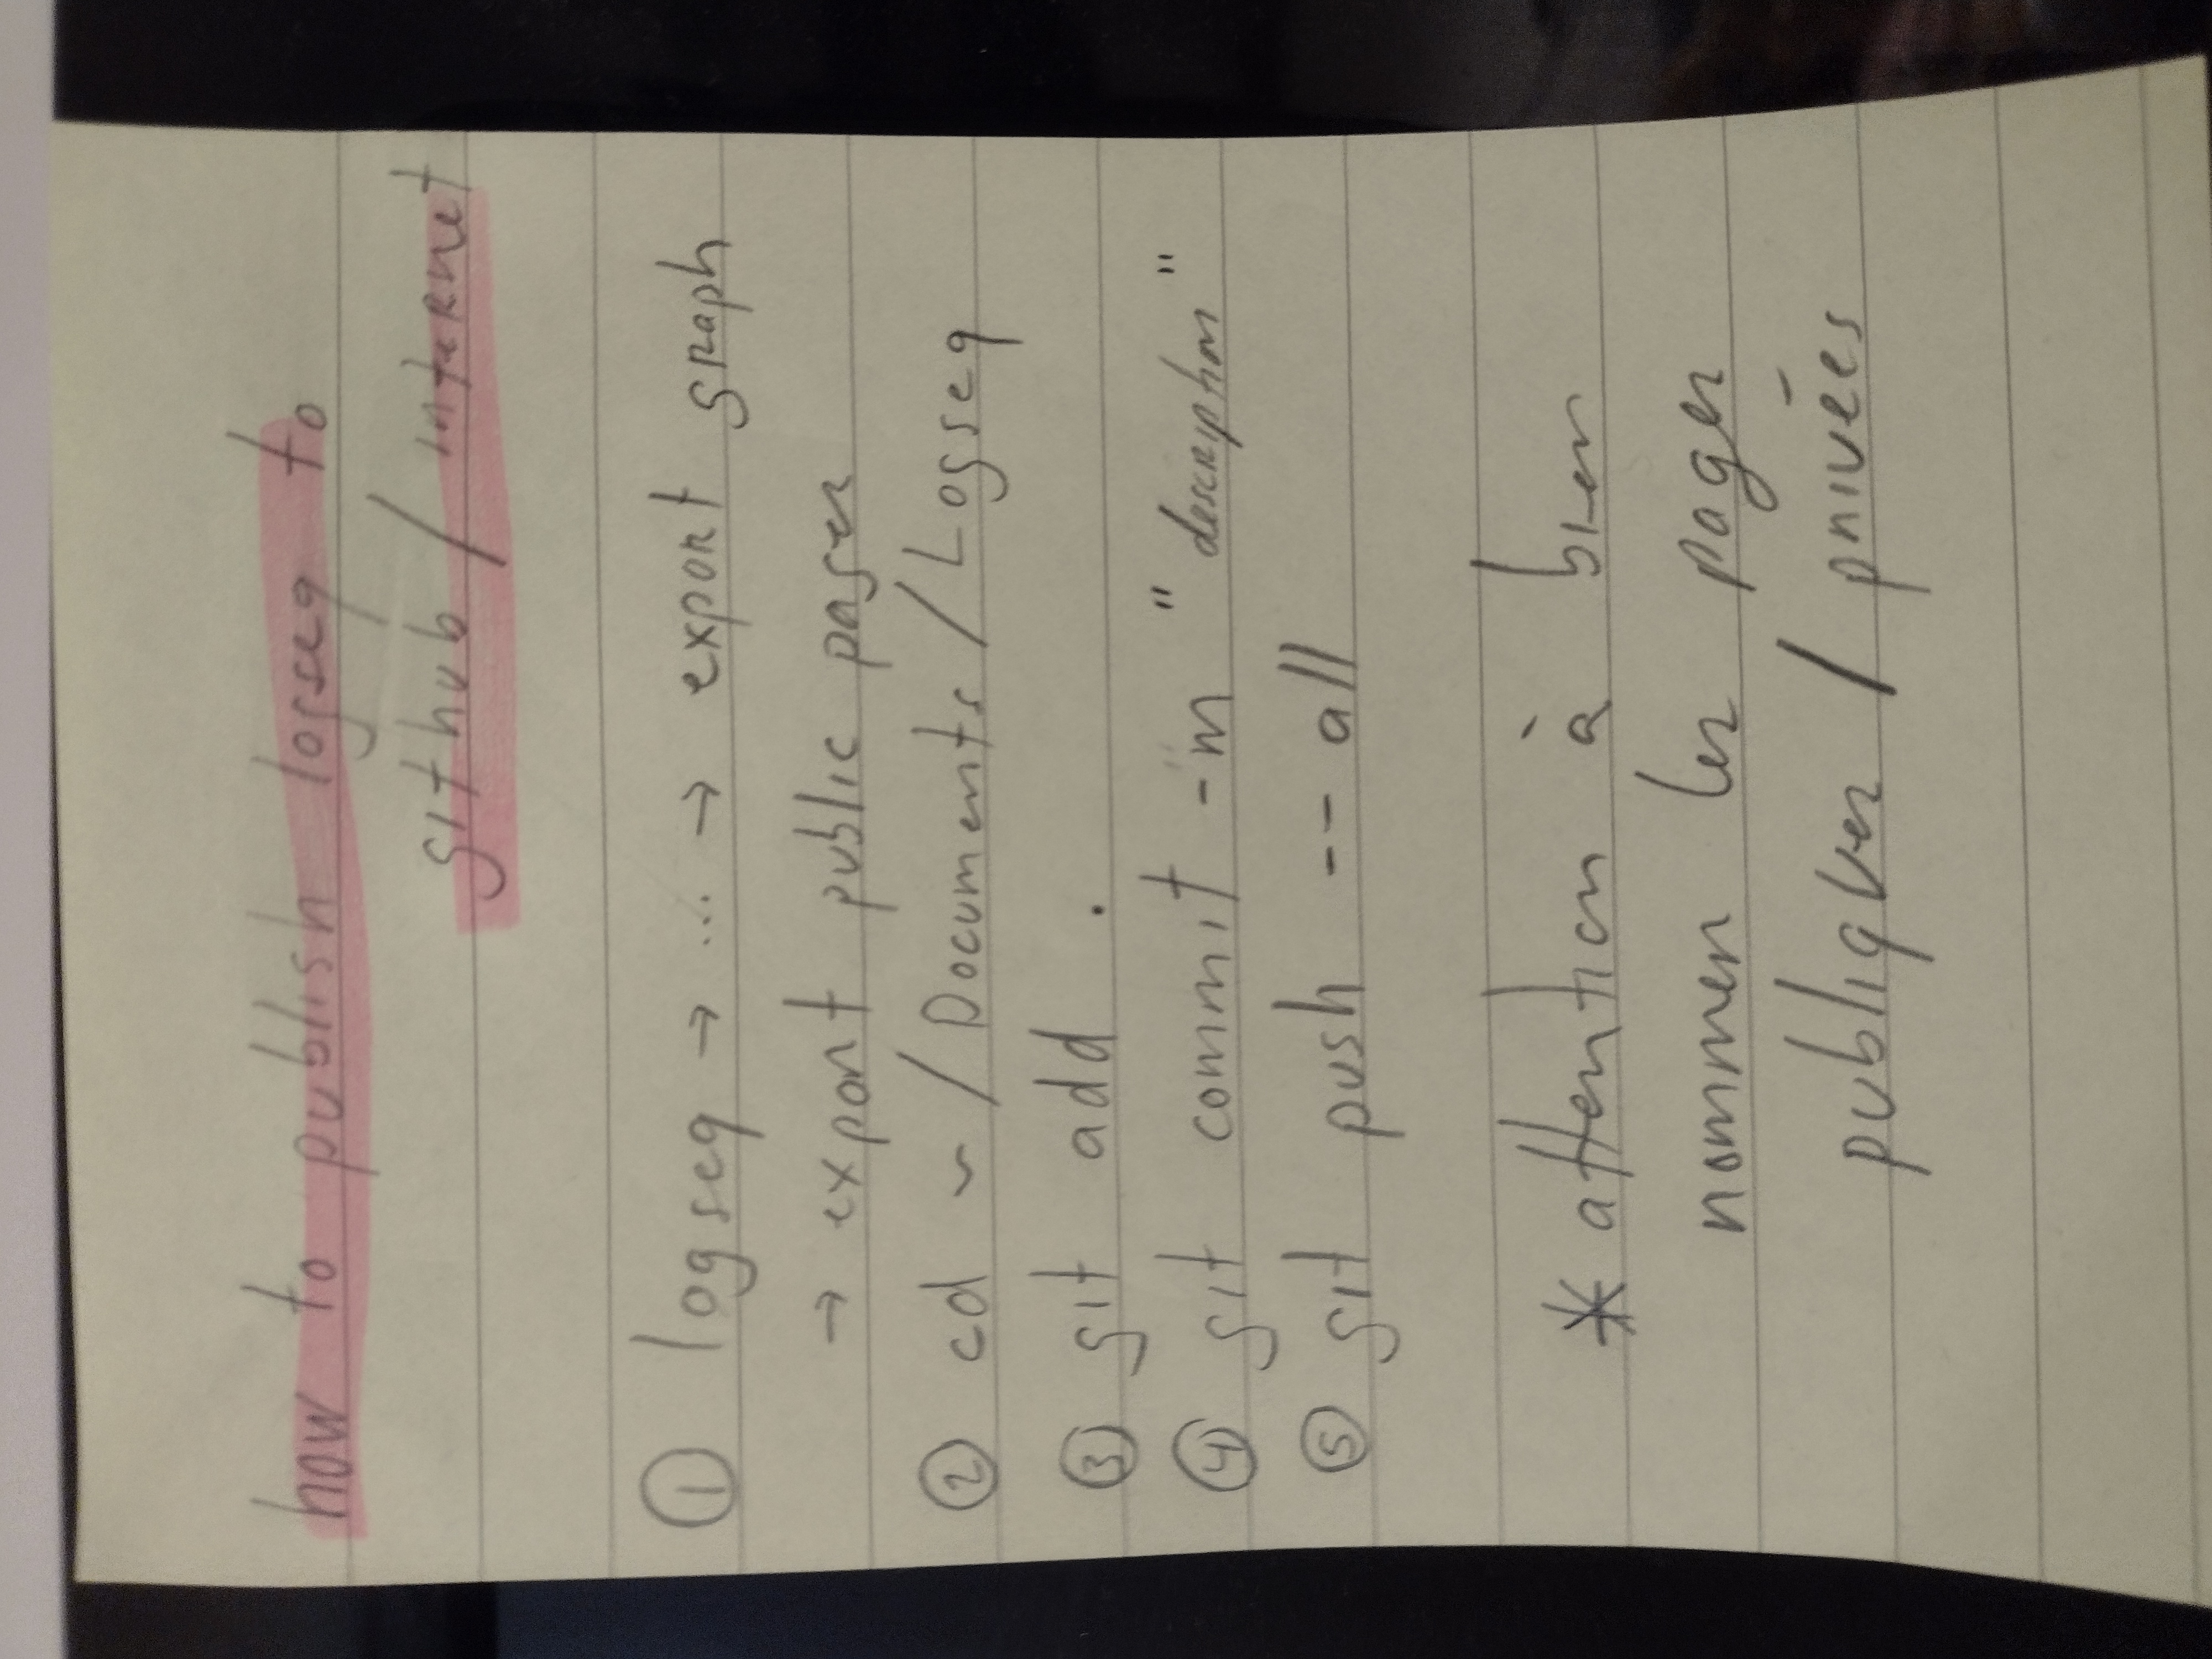 how to publish logseq to
github / internet
① logseq → ... → export graph
→ export public pages
② cd ~/Documents/Logseq
③ git add .
④ git commit -m "description"
⑤ git push --all
* attention à bien
nommer les pages
publiques / privées